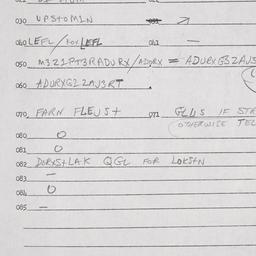 030 UPSTOMIN
040 LEFL/FOX LEFL 041 —
050 M3Z1PT3RADURX/ADURX = ADURXG3ZAUS
060 ADURXG1ZAU3RT
070 FARN FLEUST 071 GLUS IF STR
OTHERWISE TEL
080 O
081 O
082 DURXST LAK QGL FOR LOKSTN
083 —
084 O
085 —